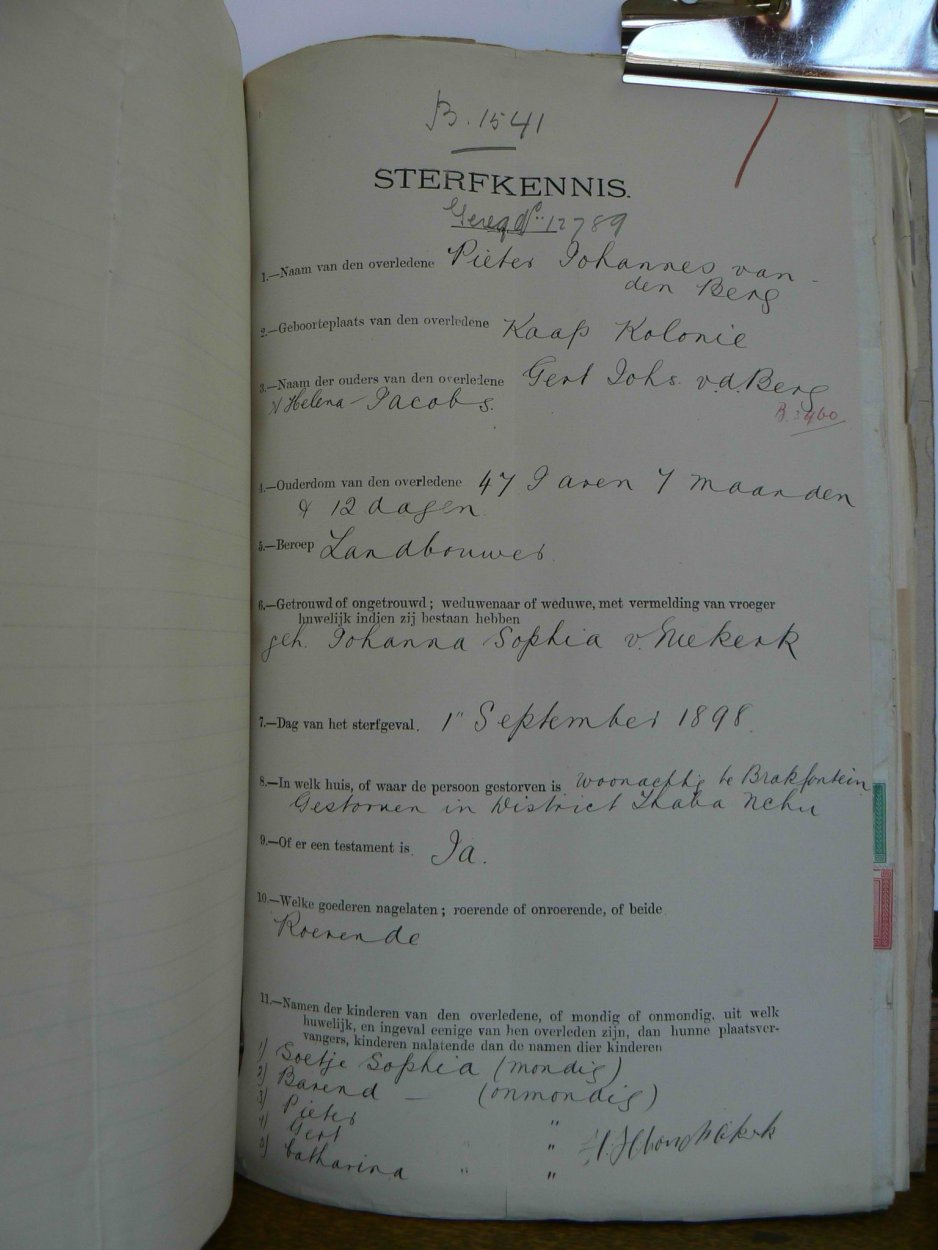 B. 1541
STERFKENNIS.
Gereg. No. 12789
1.—Naam van den overledene Pieter Johannes van
den Berg
2.—Geboorteplaats van den overledene Kaap Kolonie
3.—Naam der ouders van den overledene Gert Johs. v.d. Berg
Helena Jacobs.
B. 3460
4.—Ouderdom van den overledene 47 Jaren 7 maanden
& 12 dagen
5.—Beroep Landbouwer.
6.—Getrouwd of ongetrouwd; weduwenaar of weduwe, met vermelding van vroeger
huwelijk indien zij bestaan hebben
geh. Johanna Sophia v. Niekerk
7.—Dag van het sterfgeval. 1" September 1898
8.—In welk huis, of waar de persoon gestorven is woonachtig te Brakfontein
Gestorven in District Thaba Nchu
9.—Of er een testament is. Ja.
10.—Welke goederen nagelaten; roerende of onroerende, of beide
Roerende
11.—Namen der kinderen van den overledene, of mondig of onmondig, uit welk
huwelijk, en ingeval eenige van hen overleden zijn, dan hunne plaatsver-
vangers, kinderen nalatende dan de namen dier kinderen
1) Soetje Sophia (mondig)
2) Barend — (onmondig)
3) Pieter "
4) Gert " "
5) Catharina " "